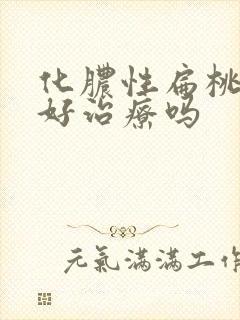 化膿性扁桃
好治療吗
元氣滿滿工作